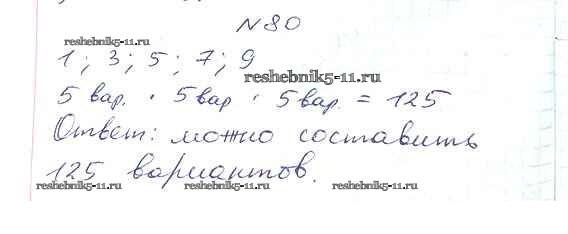 N80
reshebnik5-11.ru
1; 3; 5; 7; 9
reshebnik5-11.ru
5 вар. · 5 вар · 5 вар. = 125
Ответ: можно составить
125 вариантов.
reshebnik5-11.ru reshebnik5-11.ru reshebnik5-11.ru